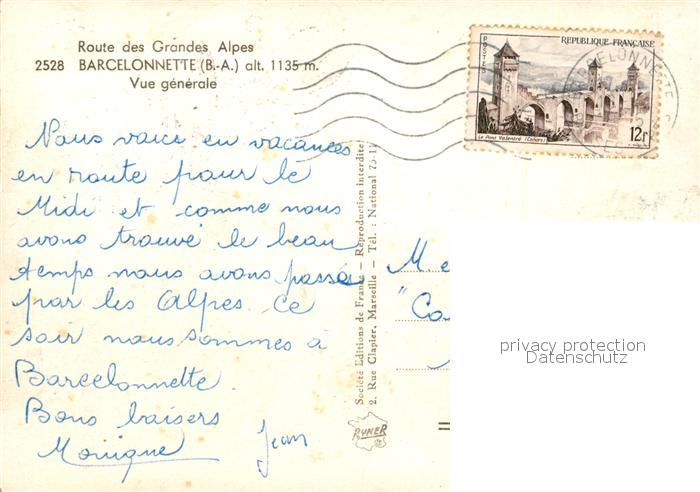 Route des Grandes Alpes
2528 BARCELONNETTE (B.-A.) alt. 1135 m.
Vue générale
POSTES
REPUBLIQUE FRANÇAISE
Le Pont Valentré (Cahors)
12f
BARCELONNETTE
Nous voici en vacances
en route pour le
Midi et comme nous
avons trouvé le beau
temps nous avons passé
par les Alpes. Ce
soir nous sommes à
Barcelonnette.
Bons baisers
Monique Jean
Société Editions de France — Reproduction interdite
2, Rue Clapier, Marseille — Tél. : National 75-11
RYNER
M. e
"Ca
privacy protection
Datenschutz